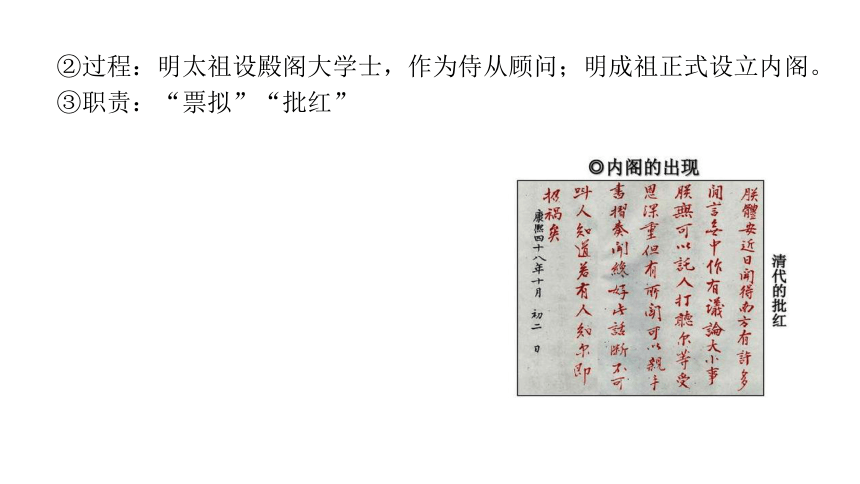 ②过程：明太祖设殿阁大学士，作为侍从顾问；明成祖正式设立内阁。
③职责：“票拟”“批红”
◎内阁的出现
朕體安近日聞得南方有許多
閒言無中作有議論大小事
朕無可以託人打聽尔等受
恩深重但有所聞可以親手
書摺奏聞纔好此話斷不可
叫人知道若有人知尔即
招禍矣
康熙四十八年十月 初二 日
清代的批红